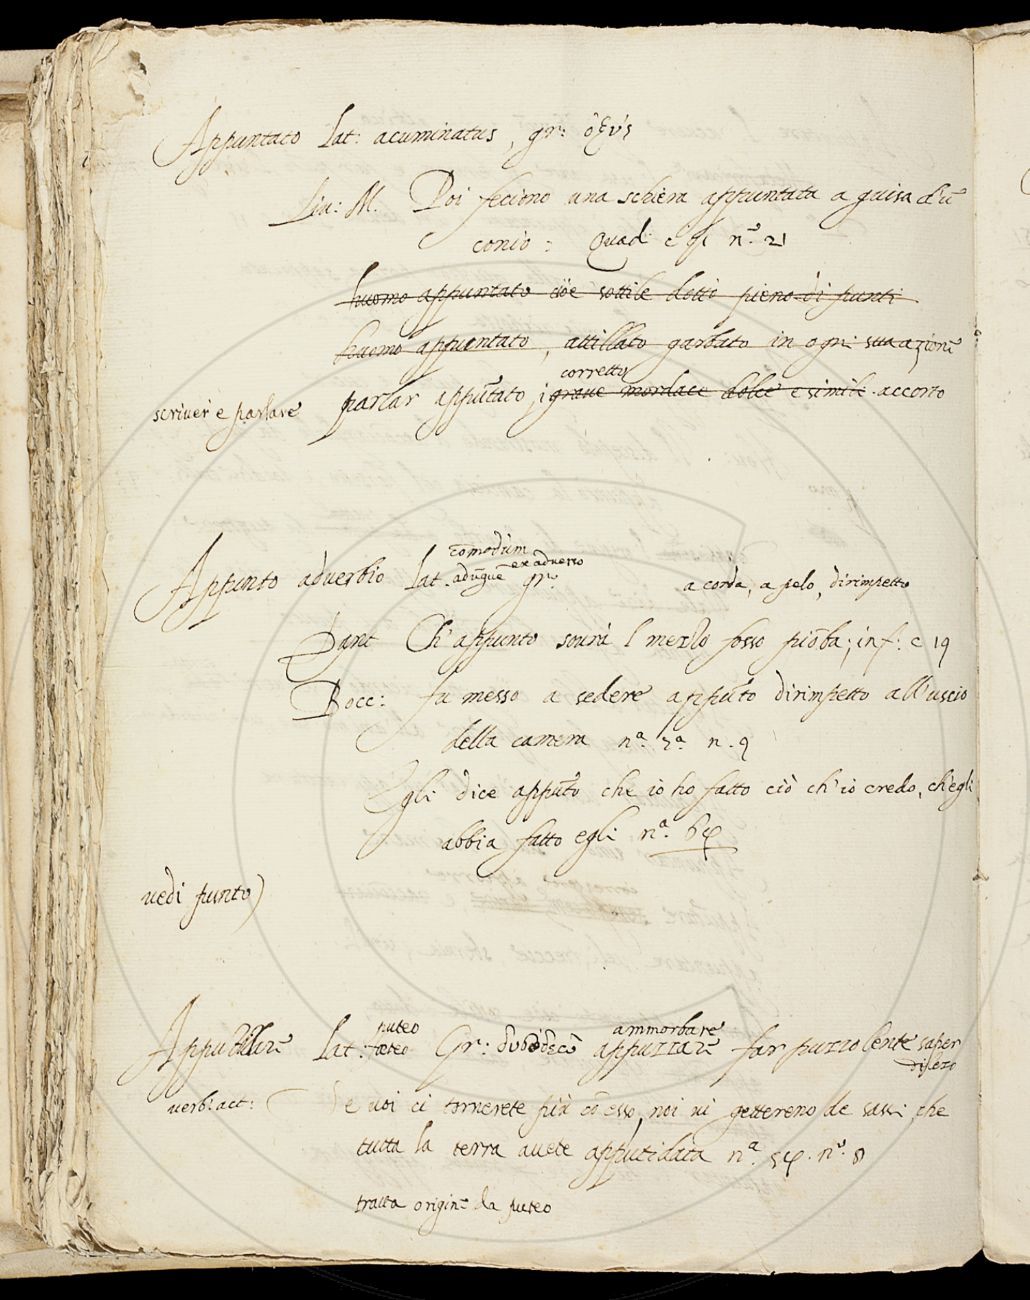 Appuntato lat: acuminatus, gr: ὀξύς
Liu: M. Poi feciono una schiera appuntata a guisa d'ũ
conio: Quad: c nº. 21
huomo appuntato cioè sottile detto pieno di punti
huomo appuntato, attillato garbato in ogni sua azione
corretto
scriver e parlare parlar appũtato, graue mordace dolce e simile. accorto
cõmodũm
Appunto adverbio lat. adũque ex adverso gr. a corda, a pelo, dirimpetto
Dant Ch' appunto soura 'l mezzo fosso piõba; inf: c 19
Bocc: fu messo a sedere appũto dirimpetto all'uscio
della camera nª. 2ª n. 9
Egli dice appũto che io ho fatto ciò ch'io credo, ch'egli
abbia fatto egli nª.
vedi punto)
puteo ammorbare
lat: fœteo Gr: appuzzare far puzzolente saper
di lezo
verb: act: Se uoi ci tornerete più cõ esso, noi ui gettereno de sassi, che
tutta la terra auete apputidata nª. nº. 8
tratta origine da puteo